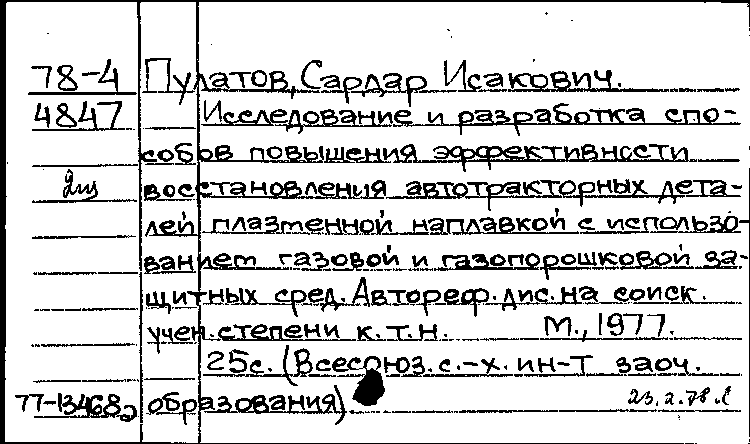 78-4 Пулатов, Сардар Исакович.
4847 Исследование и разработка спо-
собов повышения эффективности
восстановления автотракторных дета-
лей плазменной наплавкой с использо-
ванием газовой и газопорошковой за-
щитных сред. Автореф. дис. на соиск.
учен. степени к.т.н. М., 1977.
25с. (Всесоюз. с.-х. ин-т заоч.
77-13468 образования).
23.2.78